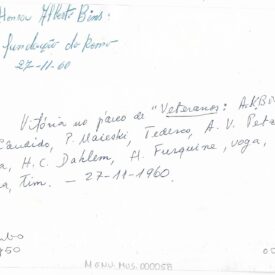 Honra Alberto Bins:
fundação do remo
27-11-60
Vitória no páreo de "Veteranos: A.K.Bi
Cândido, P. Maieski, Tedesco, A. V. Pet
a, H.C. Dahlem, H. Furquine, voga,
a, Tim. — 27-11-1960.
ubo
950
05
MENU.MUS.000058